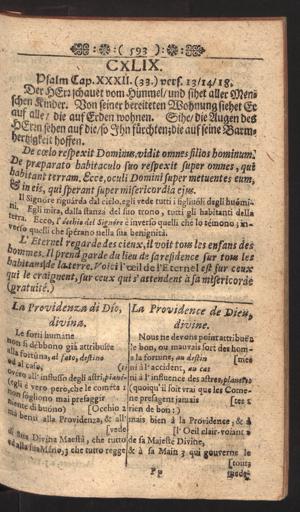 ( 593 )
CXLIX.
Psalm Cap. XXXII. (33.) vers. 13/14/18.
Der HErr schauet vom Himmel/ und sihet aller Men-
schen Kinder. Von seiner bereiteten Wohnung siehet Er
auf alle/ die auf Erden wohnen. Sihe/ die Augen des
HErrn sehen auf die/ so Ihn fürchten; die auf seine Barm-
hertzigkeit hoffen.
De cœlo respexit Dominus, vidit omnes filios hominum.
De præparato habitaculo suo respexit super omnes, qui
habitant terram. Ecce, oculi Domini super metuentes eum,
& in eis, qui sperant super misericordia ejus.
Il Signore riguarda dal cielo, egli vede tutti i figliuoli degli huomi-
ni. Egli mira, dalla stanza del suo trono, tutti gli habitanti della
terra. Ecco, l'occhio del Signore è inverso quelli che lo temono, in-
verso quelli che sperano nella sua benignità.
L'Eternel regarde des cieux, il voit tous les enfans des
hommes. Il prend garde du lieu de sa residence sur tous les
habitans de la terre. Voici l'œil de l'Eternel est sur ceux
qui le craignent, sur ceux qui s'attendent à sa misericorde
(gratuité.)
La Providenza di Dio,
divina.
Le sorti humane
non si debbono già attribuire
alla fortuna, al fato, destino
ed al caso,
overo all' influsso degli astri,
(egli è vero però, che le comete
non sogliono mai presaggir
niente di buono) [Occhio
mà bensi alla Providenza, & all'
[vede
di sua Divina Maestà, che tutto
ed alla sua Mano, che tutto regge
La Providence de Dieu,
divine.
Nous ne devons point attribuer
le bon, ou mauvais sort des hom-
à la fortune, au destin [mes
ni à l'accident, au cas
ni à l'influence des astres, planetes
(quoiqu'il soit vrai que les Come-
ne presagent jamais [tes
rien de bon:)
mais bien à la Providence, & à
[l'Oeil clair-voiant
de sa Majesté Divine,
& à sa Main qui gouverne le
[tout
Pp